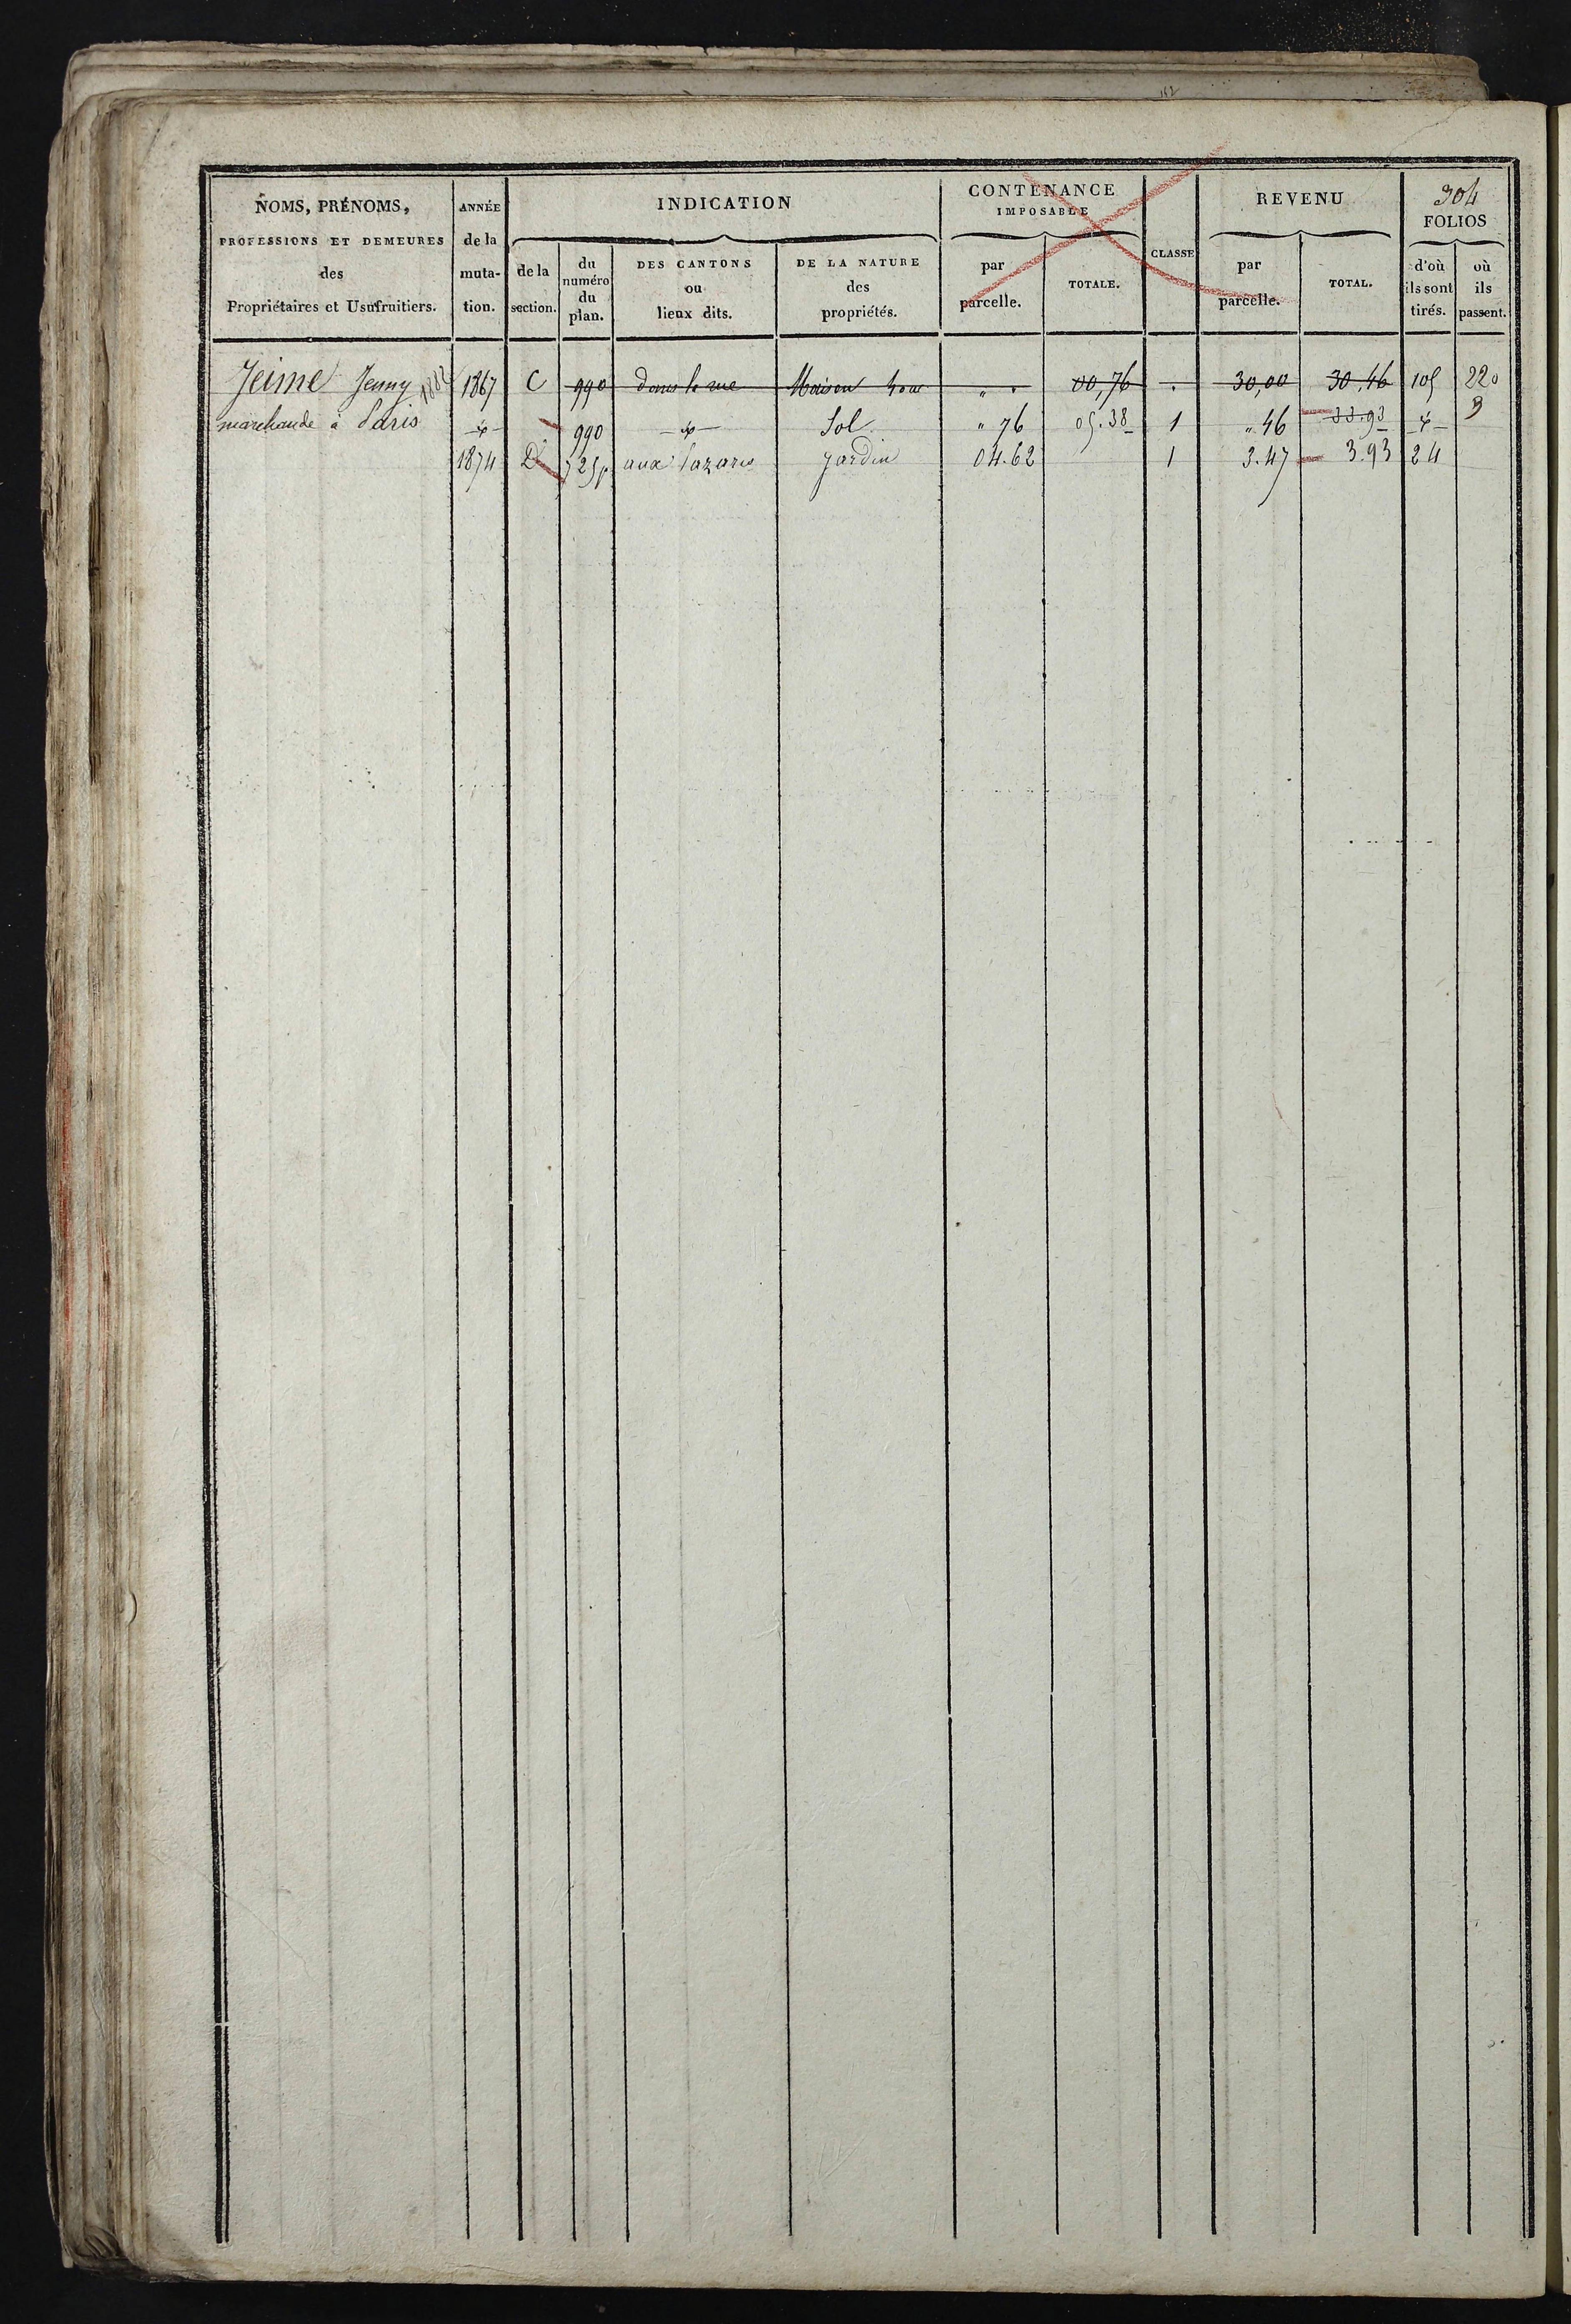 162
304
NOMS, PRÉNOMS,
PROFESSIONS ET DEMEURES
des
Propriétaires et Usufruitiers.
ANNÉE
de la
muta-
tion.
INDICATION
de la
section.
du
numéro
du
plan.
DES CANTONS
ou
lieux dits.
DE LA NATURE
des
propriétés.
CONTENANCE
IMPOSABLE
par
parcelle.
TOTALE.
CLASSE
REVENU
par
parcelle.
TOTAL.
FOLIOS
d'où
ils sont
tirés.
où
ils
passent.
Jeime Jenny 1882 1867 C 990 dans la rue Maison " . 00,76 . 30,00 30.46 105 220
marchande à Paris 990 Sol " 76 05.38 1 " 46 33.93 3
1874 D 725p aux Lazares jardin 04.62 1 3.47 3.93 24